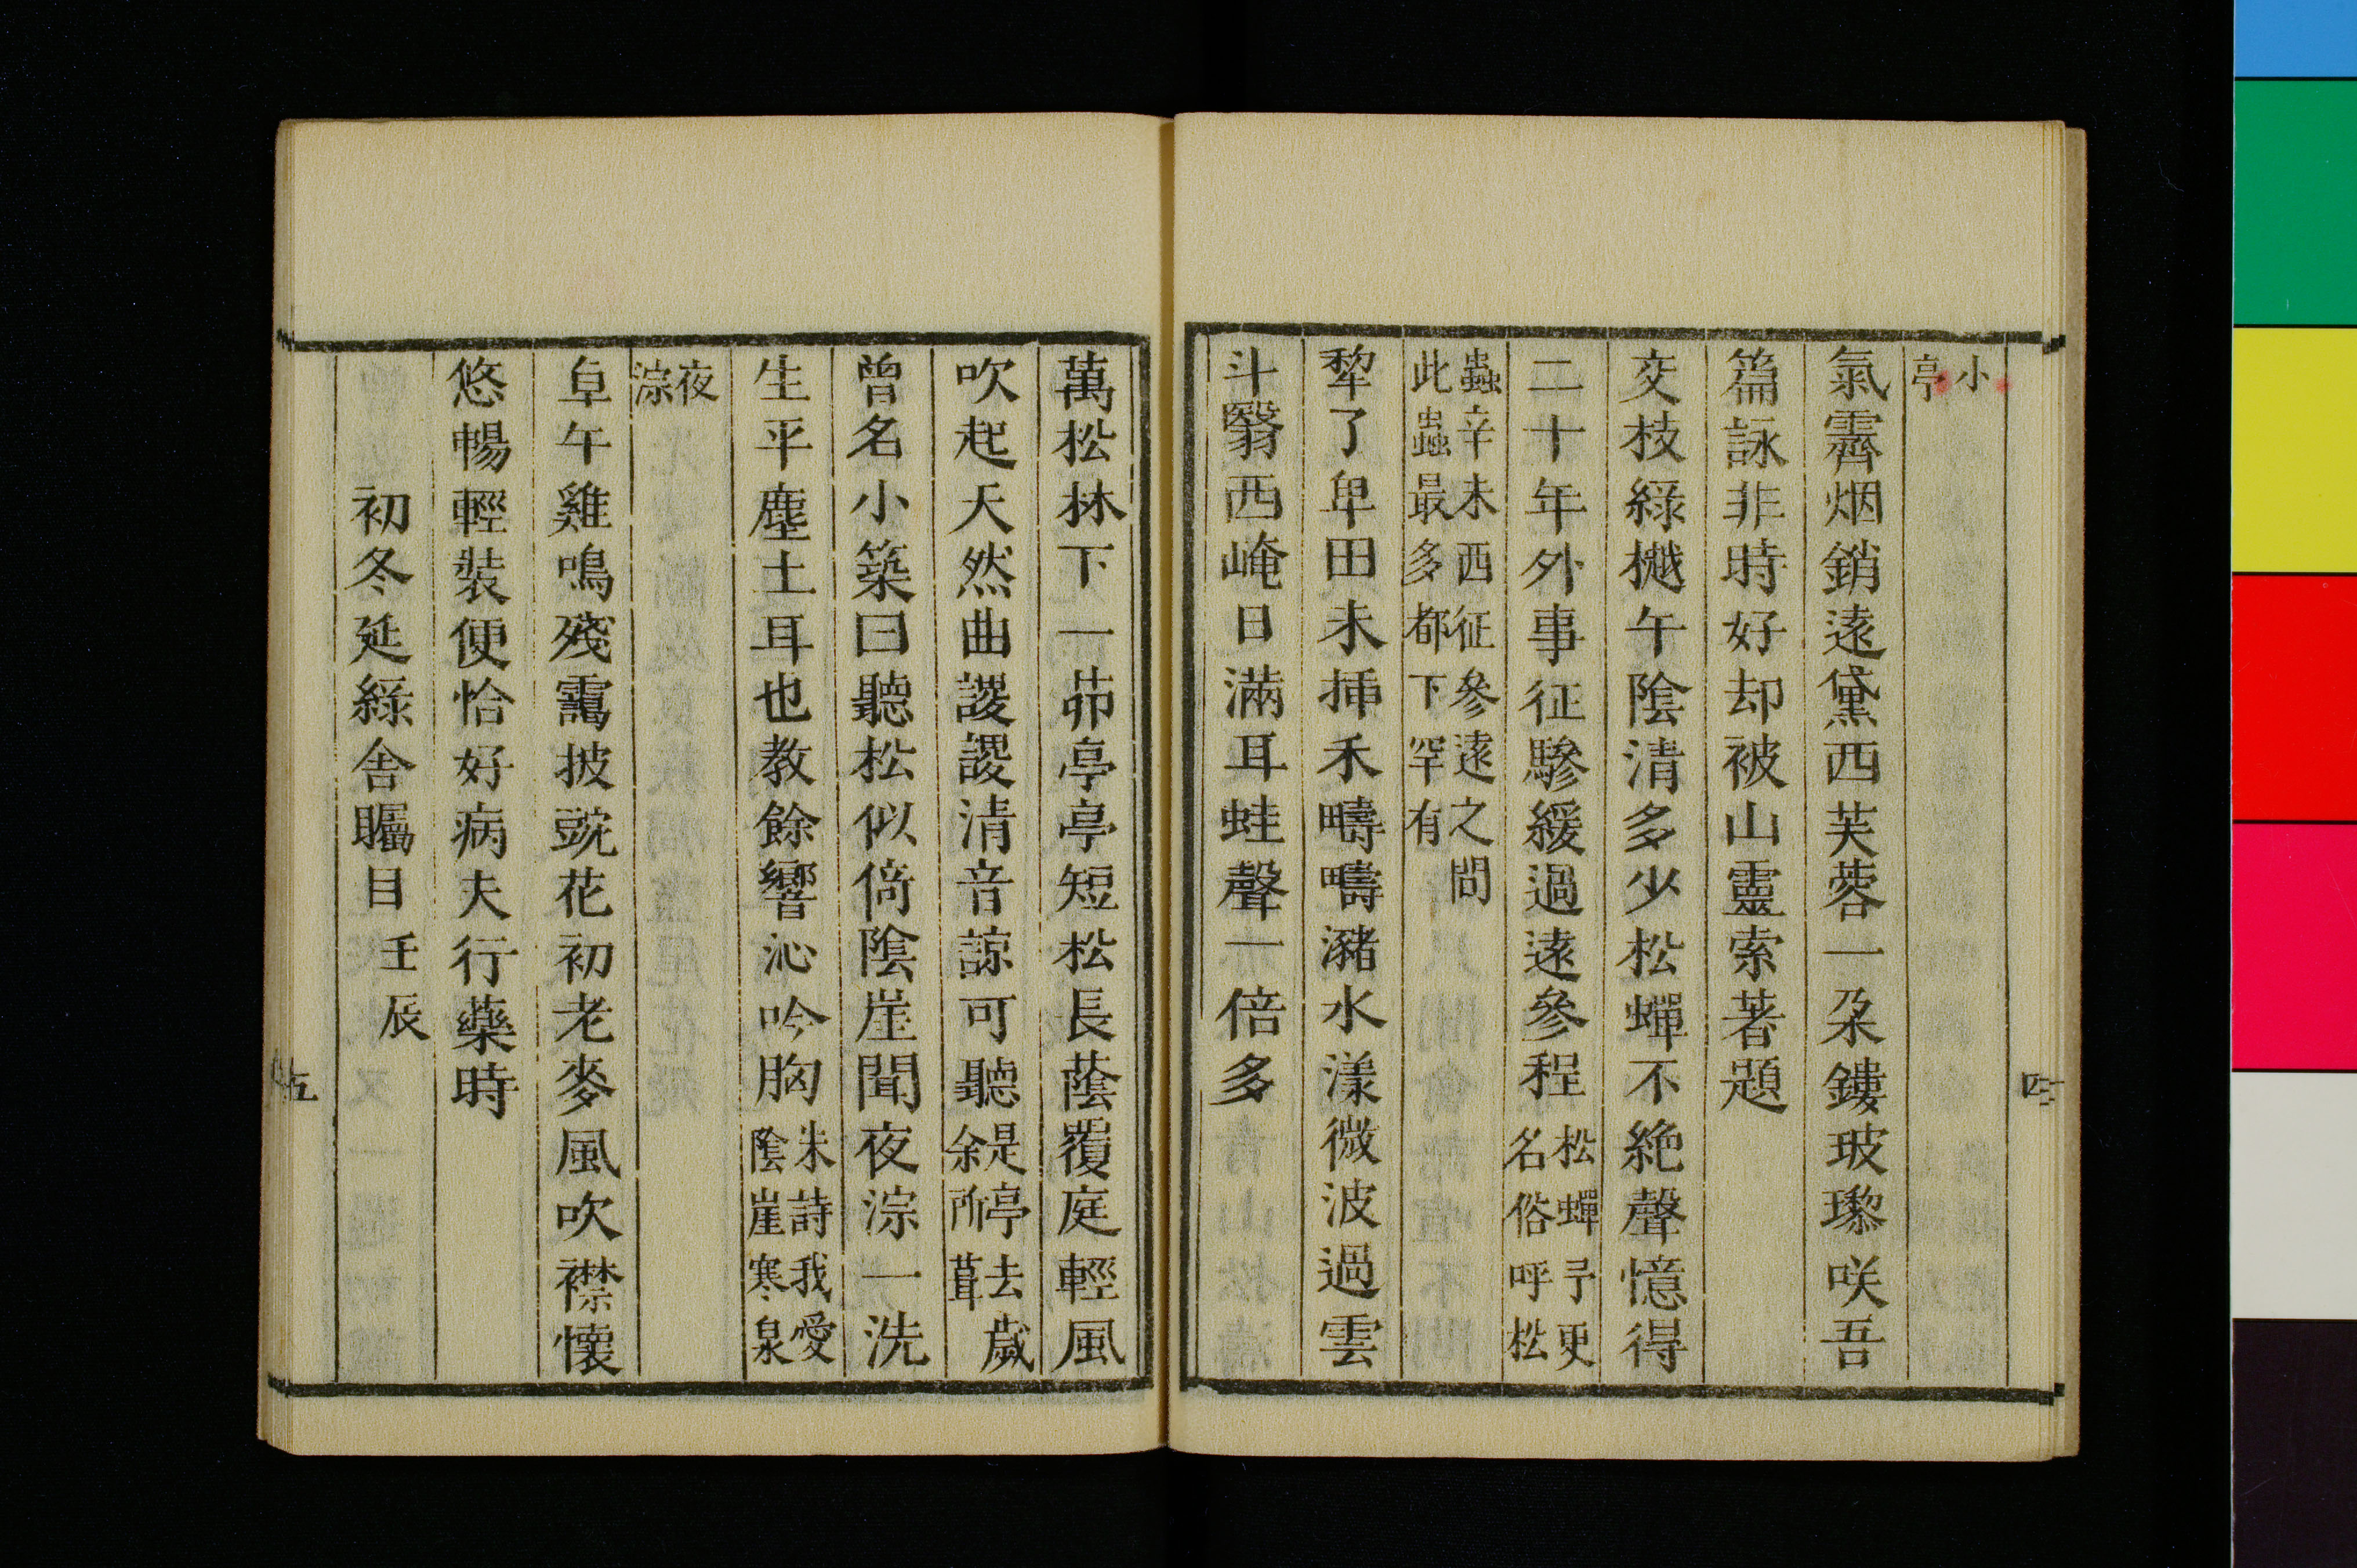 小
亭
氣霽烟銷遠黛西芙蓉一朶鏤玻瓈咲吾
篇詠非時好却被山靈索著題
交枝綠樾午陰清多少松蟬不絶聲憶得
二十年外事征驂緩過遠參程松蟬予更
名俗呼松
蟲辛未西征參遠之間
此蟲最多都下罕有
犂了阜田未揷禾疇疇瀦水漾微波過雲
斗翳西崦日滿耳蛙聲一倍多
萬松林下一茆亭亭短松長蔭覆庭輕風
吹起天然曲謖謖清音諒可聽是亭去歲
余所葺
曾名小築曰聽松似倚陰崖聞夜淙一洗
生平塵土耳也教餘響沁吟胸朱詩我愛
陰崖寒泉
夜
淙
阜午雞鳴殘靄披豌花初老麥風吹襟懷
悠暢輕裝便恰好病夫行藥時
初冬延綠舍矚目壬辰
四
五